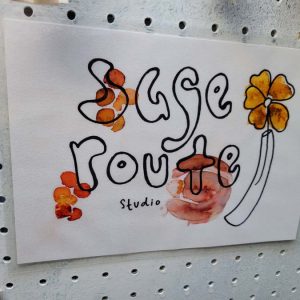 suge
route
studio